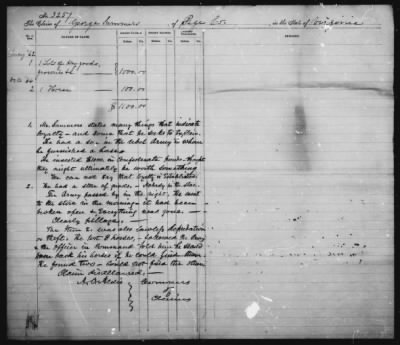 No. 3257
The Claim of George Summers of Page Co. in the State of Virginia
No. NATURE OF CLAIM. AMOUNT CLAIMED. AMOUNT ALLOWED. AMOUNT DISALLOWED. REMARKS.
Dollars. Cts. Dollars. Cts. Dollars. Cts.
62
1 1 Lot of dry goods,
groceries &c 1000.00
2 1 Horse 100.00
$1100.00
1. Mr Summers states many things that indicate
loyalty – and some that he seeks to explain.
He had a son in the rebel Army to whom
he furnished a horse.
He invested $1000 in Confederate funds – thought
they might ultimately be worth something.
We can not say that loyalty is established.
2. He had a store of goods – nobody in the store.
The Army passed by in the night, He went
to the store in the morning – it had been
broken open & Everything was gone –
Clearly pillage –
The Item 2 was also clearly depredation
or theft. He lost 3 horses, – followed the Army
& the officer in Command told him he could
have back his horses if he could find them
He found two – could not find the other
Claim disallowed. —
A. O. Aldis Commrs
of
Claims